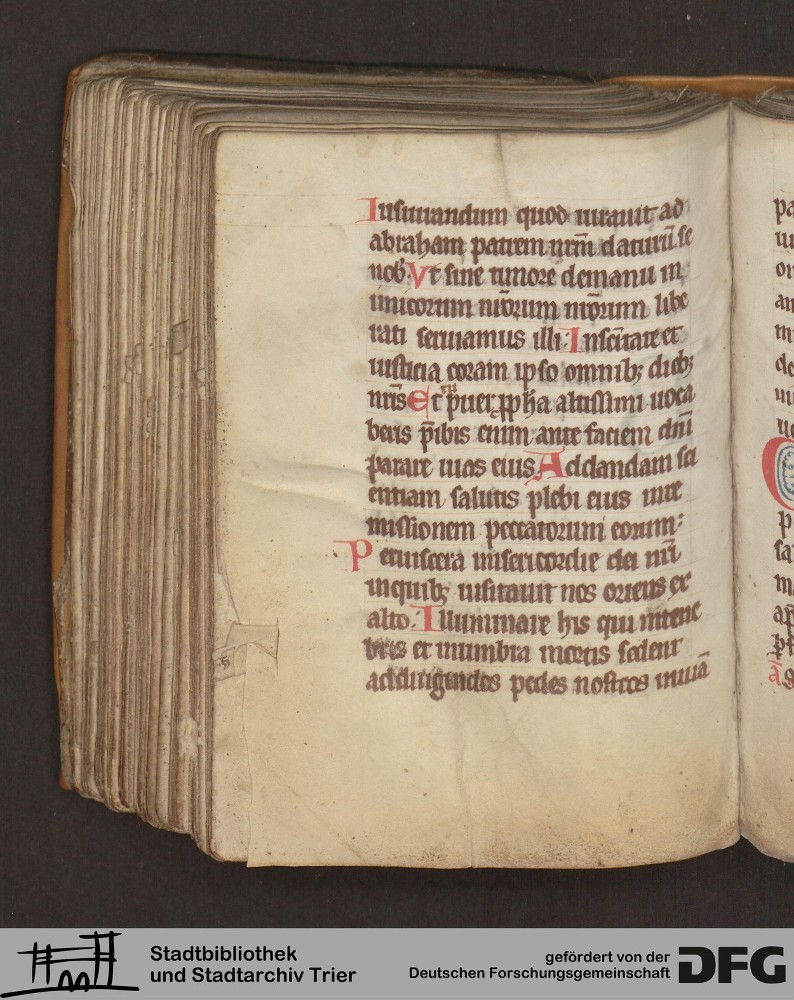 Iusiurandum quod iurauit ad
abraham patrem nr̄m daturū se
nob᷒. Vt sine timore demanu in
imicorum nr̄orum nr̄orum libe
rati seruiamus illi. Insc̄itate et
iusticia coram ipso omnibꝫ diebꝫ
nr̄is Et tu puer ꝓph̄a altissimi uoca
beris p̄ibis enim ante faciem dn̄i
parare uias eius. Addandam sci
entiam salutis plebi eius inre
missionem peccatorum eorum:
Peruiscera misericordie dei nr̄i
inquibꝫ uisitauit nos oriens ex
alto. Illuminare his qui intene
bris et inumbra mortis sedent
addirigendos pedes nostros inuiā
pa
or
an
de
C
p
sa
ā
Stadtbibliothek
und Stadtarchiv Trier
gefördert von der
Deutschen Forschungsgemeinschaft
DFG